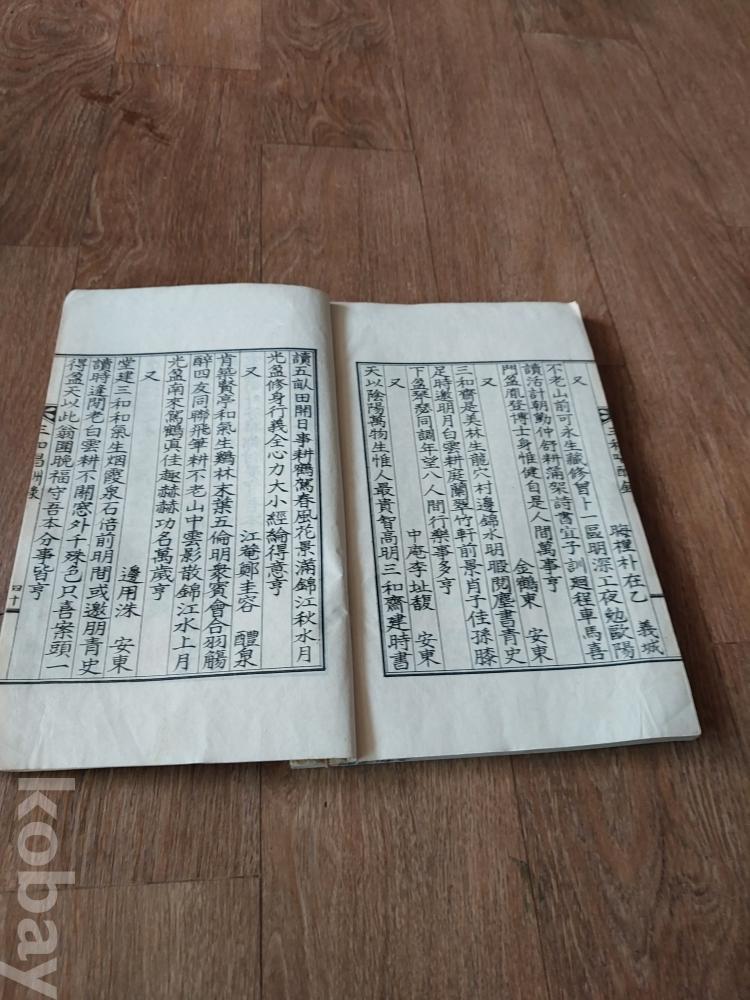 又 晦種朴在乙 義城
不老山前可永生藏修曾卜一區明深工夜勉歐陽
讀活計朝勤仲舒耕滿架詩書宜子訓廻程車馬喜
門盈鳳登博士身惟健自是人間萬事亨
又 金鶴東 安東
三和齋是美林生龍穴村邊錦水明暇閱塵書青史
足時邀明月白雲耕庭蘭翠竹軒前景肖子佳孫膝
下盈琴瑟同調年望八人間行樂事多亨
又 中庵李址馥 安東
天以陰陽萬物生惟人最貴智高明三和齋建時書
讀五畝田開日事耕鶴駕春風花景滿錦江秋水月
光盈修身行義全心力大小經綸得意亨
又 江菴鄭圭容 醴泉
肯築賢亭和氣生鷄林末葉五倫明衆賓會合羽觴
醉四友同聯飛筆耕不老山中雲影散錦江水上月
光盈南來駕鶴眞佳趣赫赫功名萬歲亨
又 邊用洙 安東
堂建三和和氣生烟霞泉石倍前明間或邀朋青史
讀時逢閑老白雲耕不關窓外千殊色只喜案頭一
得盈天以此翁圖晚福守吾本分事皆亨
三和唱酬錄 四十
kobay